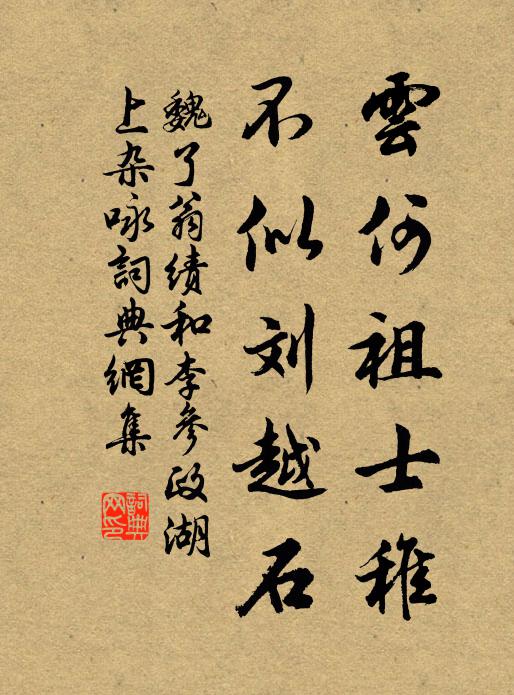 雲何祖士稚
不似刘越石
魏了翁績和李參政湖
上杂咏詞典網集
詞典网印